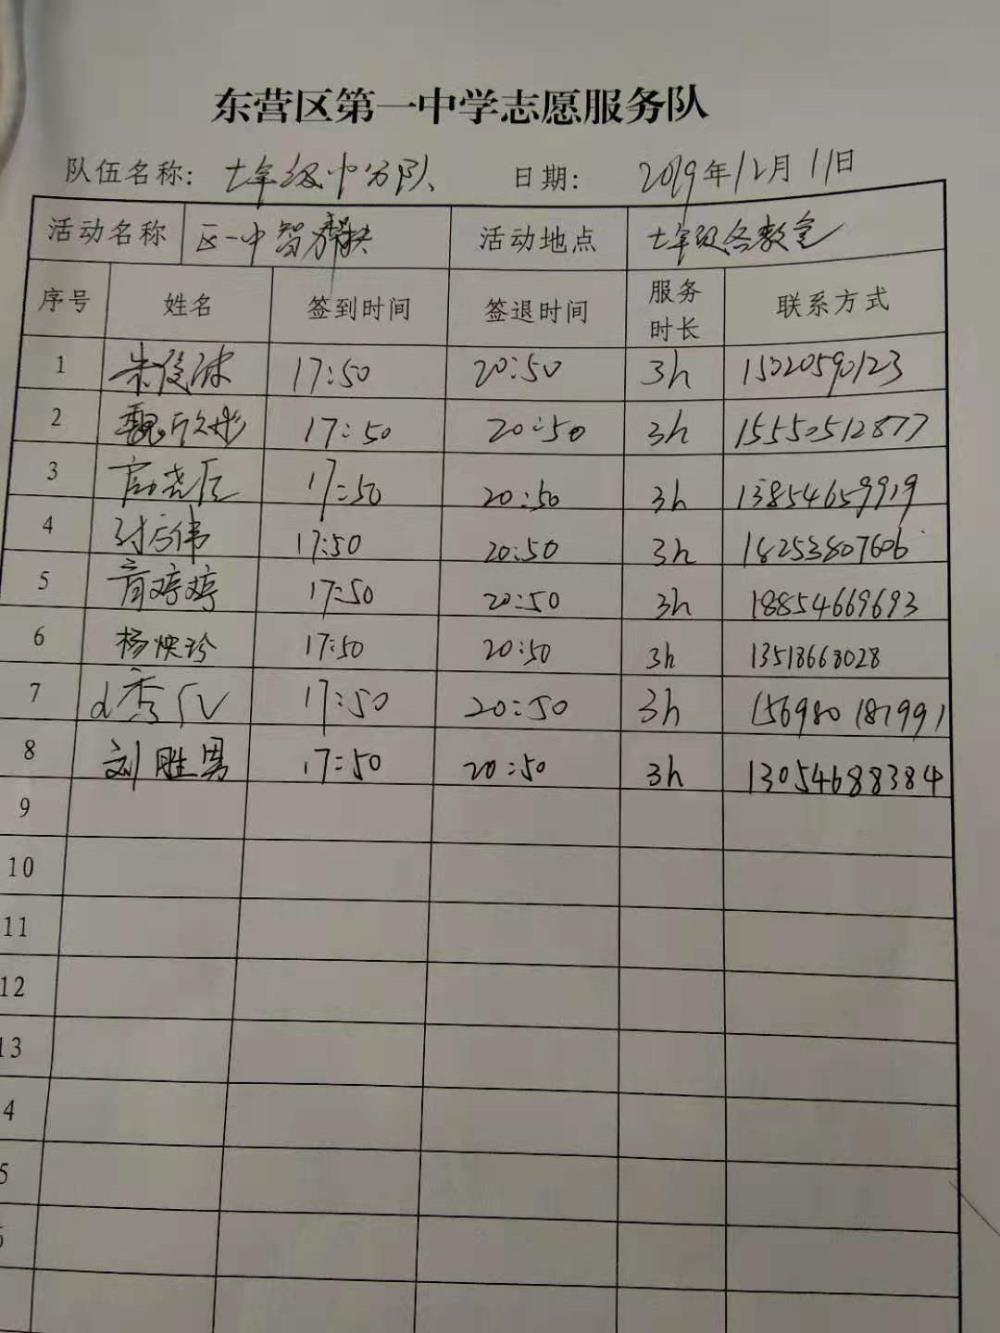 东营区第一中学志愿服务队
队伍名称: 七年级中分队 日期: 2019年12月11日
活动名称 区一中智力帮扶 活动地点 七年级各教室
序号 姓名 签到时间 签退时间 服务时长 联系方式
1 朱俊 17:50 20:50 3h 15020590123
2 魏 17:50 20:50 3h 15550512877
3 17:50 20:50 3h 13854659919
4 17:50 20:50 3h 18253807606
5 婷婷 17:50 20:50 3h 18854669693
6 杨 珍 17:50 20:50 3h 13518668028
7 17:50 20:50 3h 156980187991
8 刘胜男 17:50 20:50 3h 13054688384
9
10
11
12
13
4
5